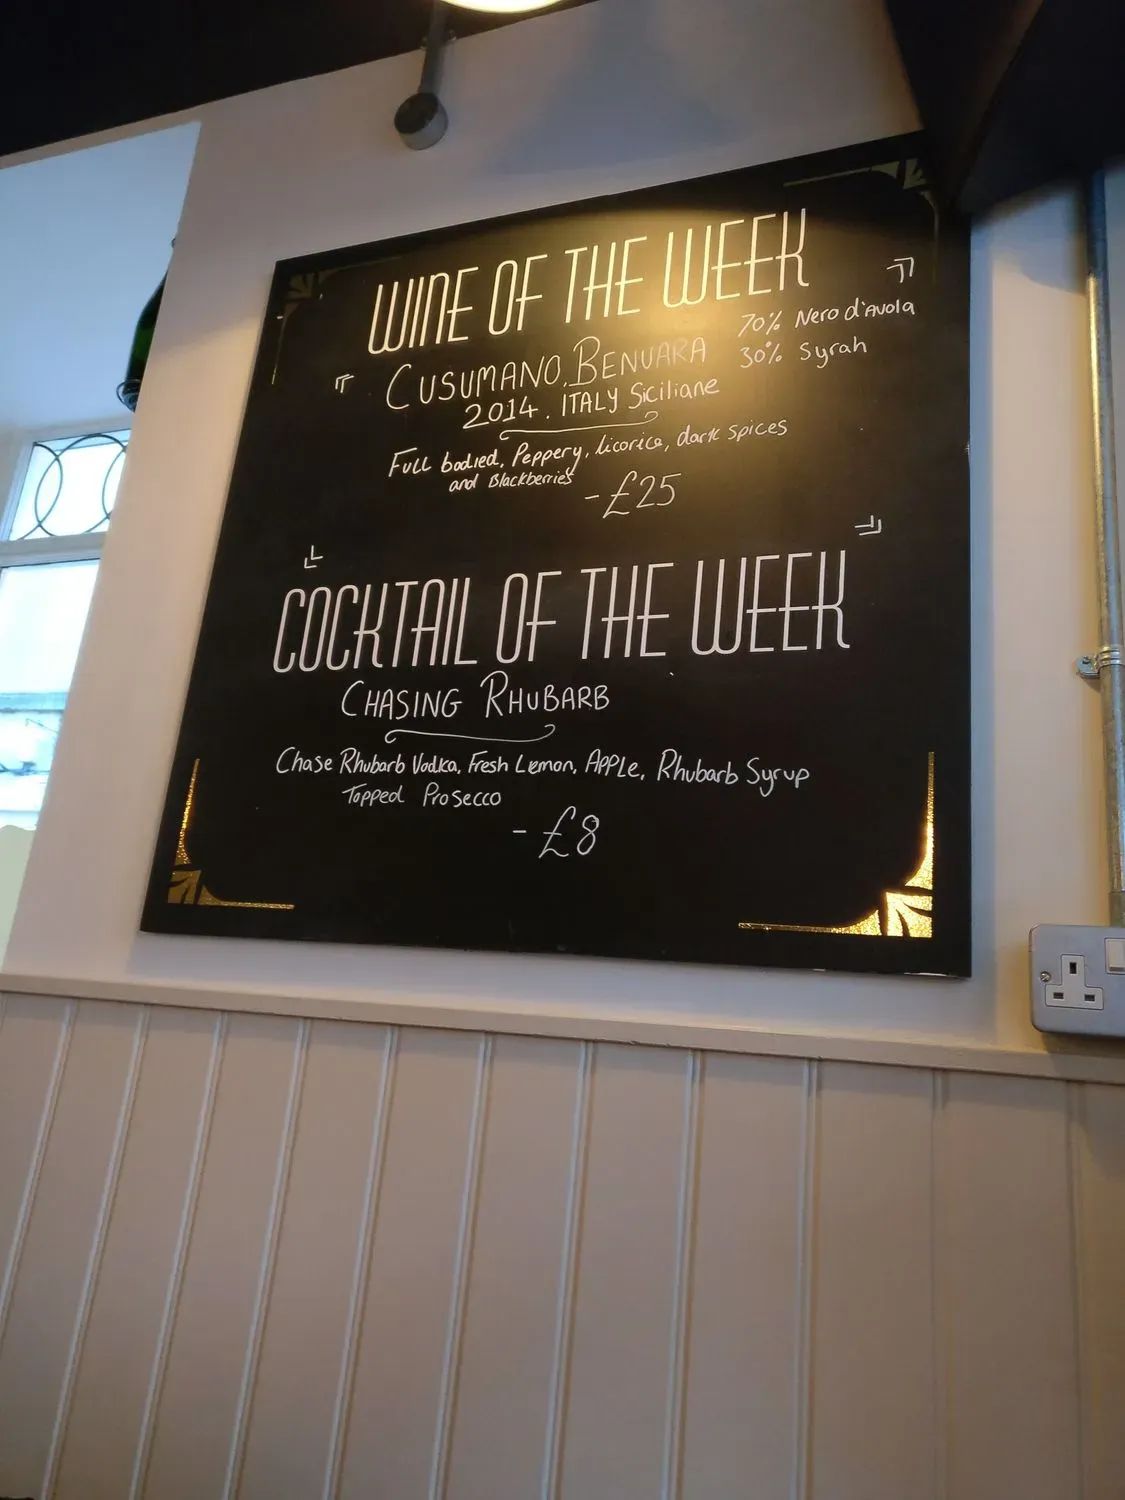 WINE OF THE WEEK
70% Nero d'Avola
30% Syrah
CUSUMANO, BENUARA
2014. ITALY Siciliane
Full bodied, Peppery, licorice, dark spices
and Blackberries
- £25
COCKTAIL OF THE WEEK
CHASING RHUBARB
Chase Rhubarb Vodka, Fresh Lemon, APPLe, Rhubarb Syrup
Topped Prosecco
- £8